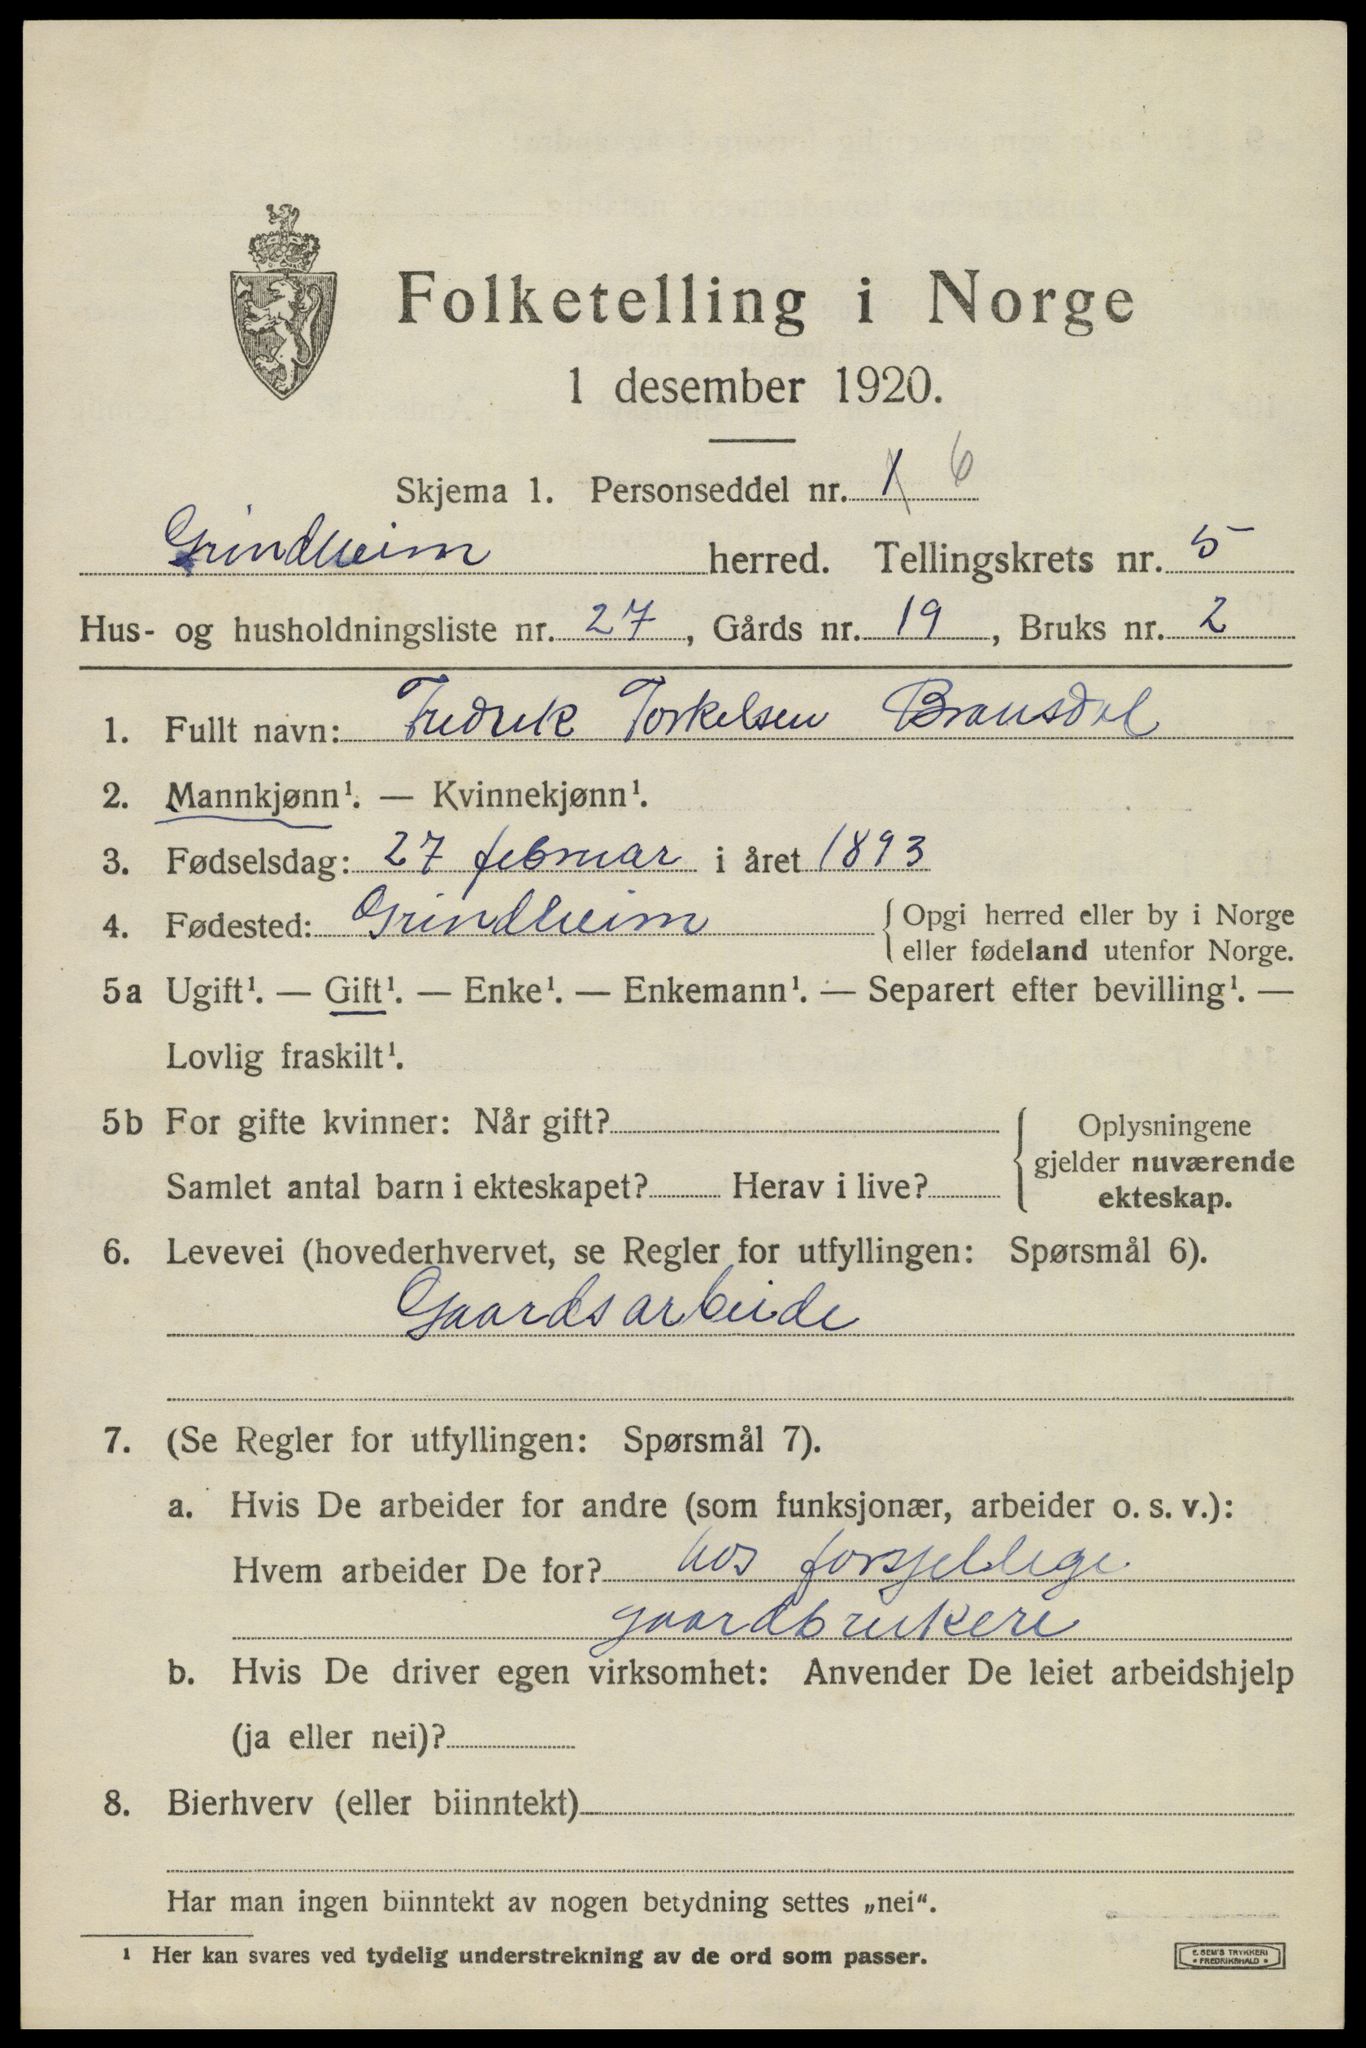 Folketelling i Norge
1 desember 1920.
Skjema 1. Personseddel nr. 1 6
Grindheim herred. Tellingskrets nr. 5
Hus- og husholdningsliste nr. 27, Gårds nr. 19, Bruks nr. 2
1. Fullt navn: Fredrik Torkelsen Bransdal
2. Mannkjønn¹. — Kvinnekjønn¹.
3. Fødselsdag: 27 februar i året 1893
4. Fødested: Grindheim { Opgi herred eller by i Norge
eller fødeland utenfor Norge.
5a Ugift¹. — Gift¹. — Enke¹. — Enkemann¹. — Separert efter bevilling¹. —
Lovlig fraskilt¹.
5b For gifte kvinner: Når gift?
Samlet antal barn i ekteskapet? Herav i live?
Oplysningene
gjelder nuværende
ekteskap.
6. Levevei (hovederhvervet, se Regler for utfyllingen: Spørsmål 6).
Gaardsarbeide
7. (Se Regler for utfyllingen: Spørsmål 7).
a. Hvis De arbeider for andre (som funksjonær, arbeider o. s. v.):
Hvem arbeider De for? hos forsjellige
gaardbrukere
b. Hvis De driver egen virksomhet: Anvender De leiet arbeidshjelp
(ja eller nei)?
8. Bierhverv (eller biinntekt)
Har man ingen biinntekt av nogen betydning settes „nei“.
¹ Her kan svares ved tydelig understrekning av de ord som passer.
E. SEM'S TRYKKERI
FREDRIKSHALD